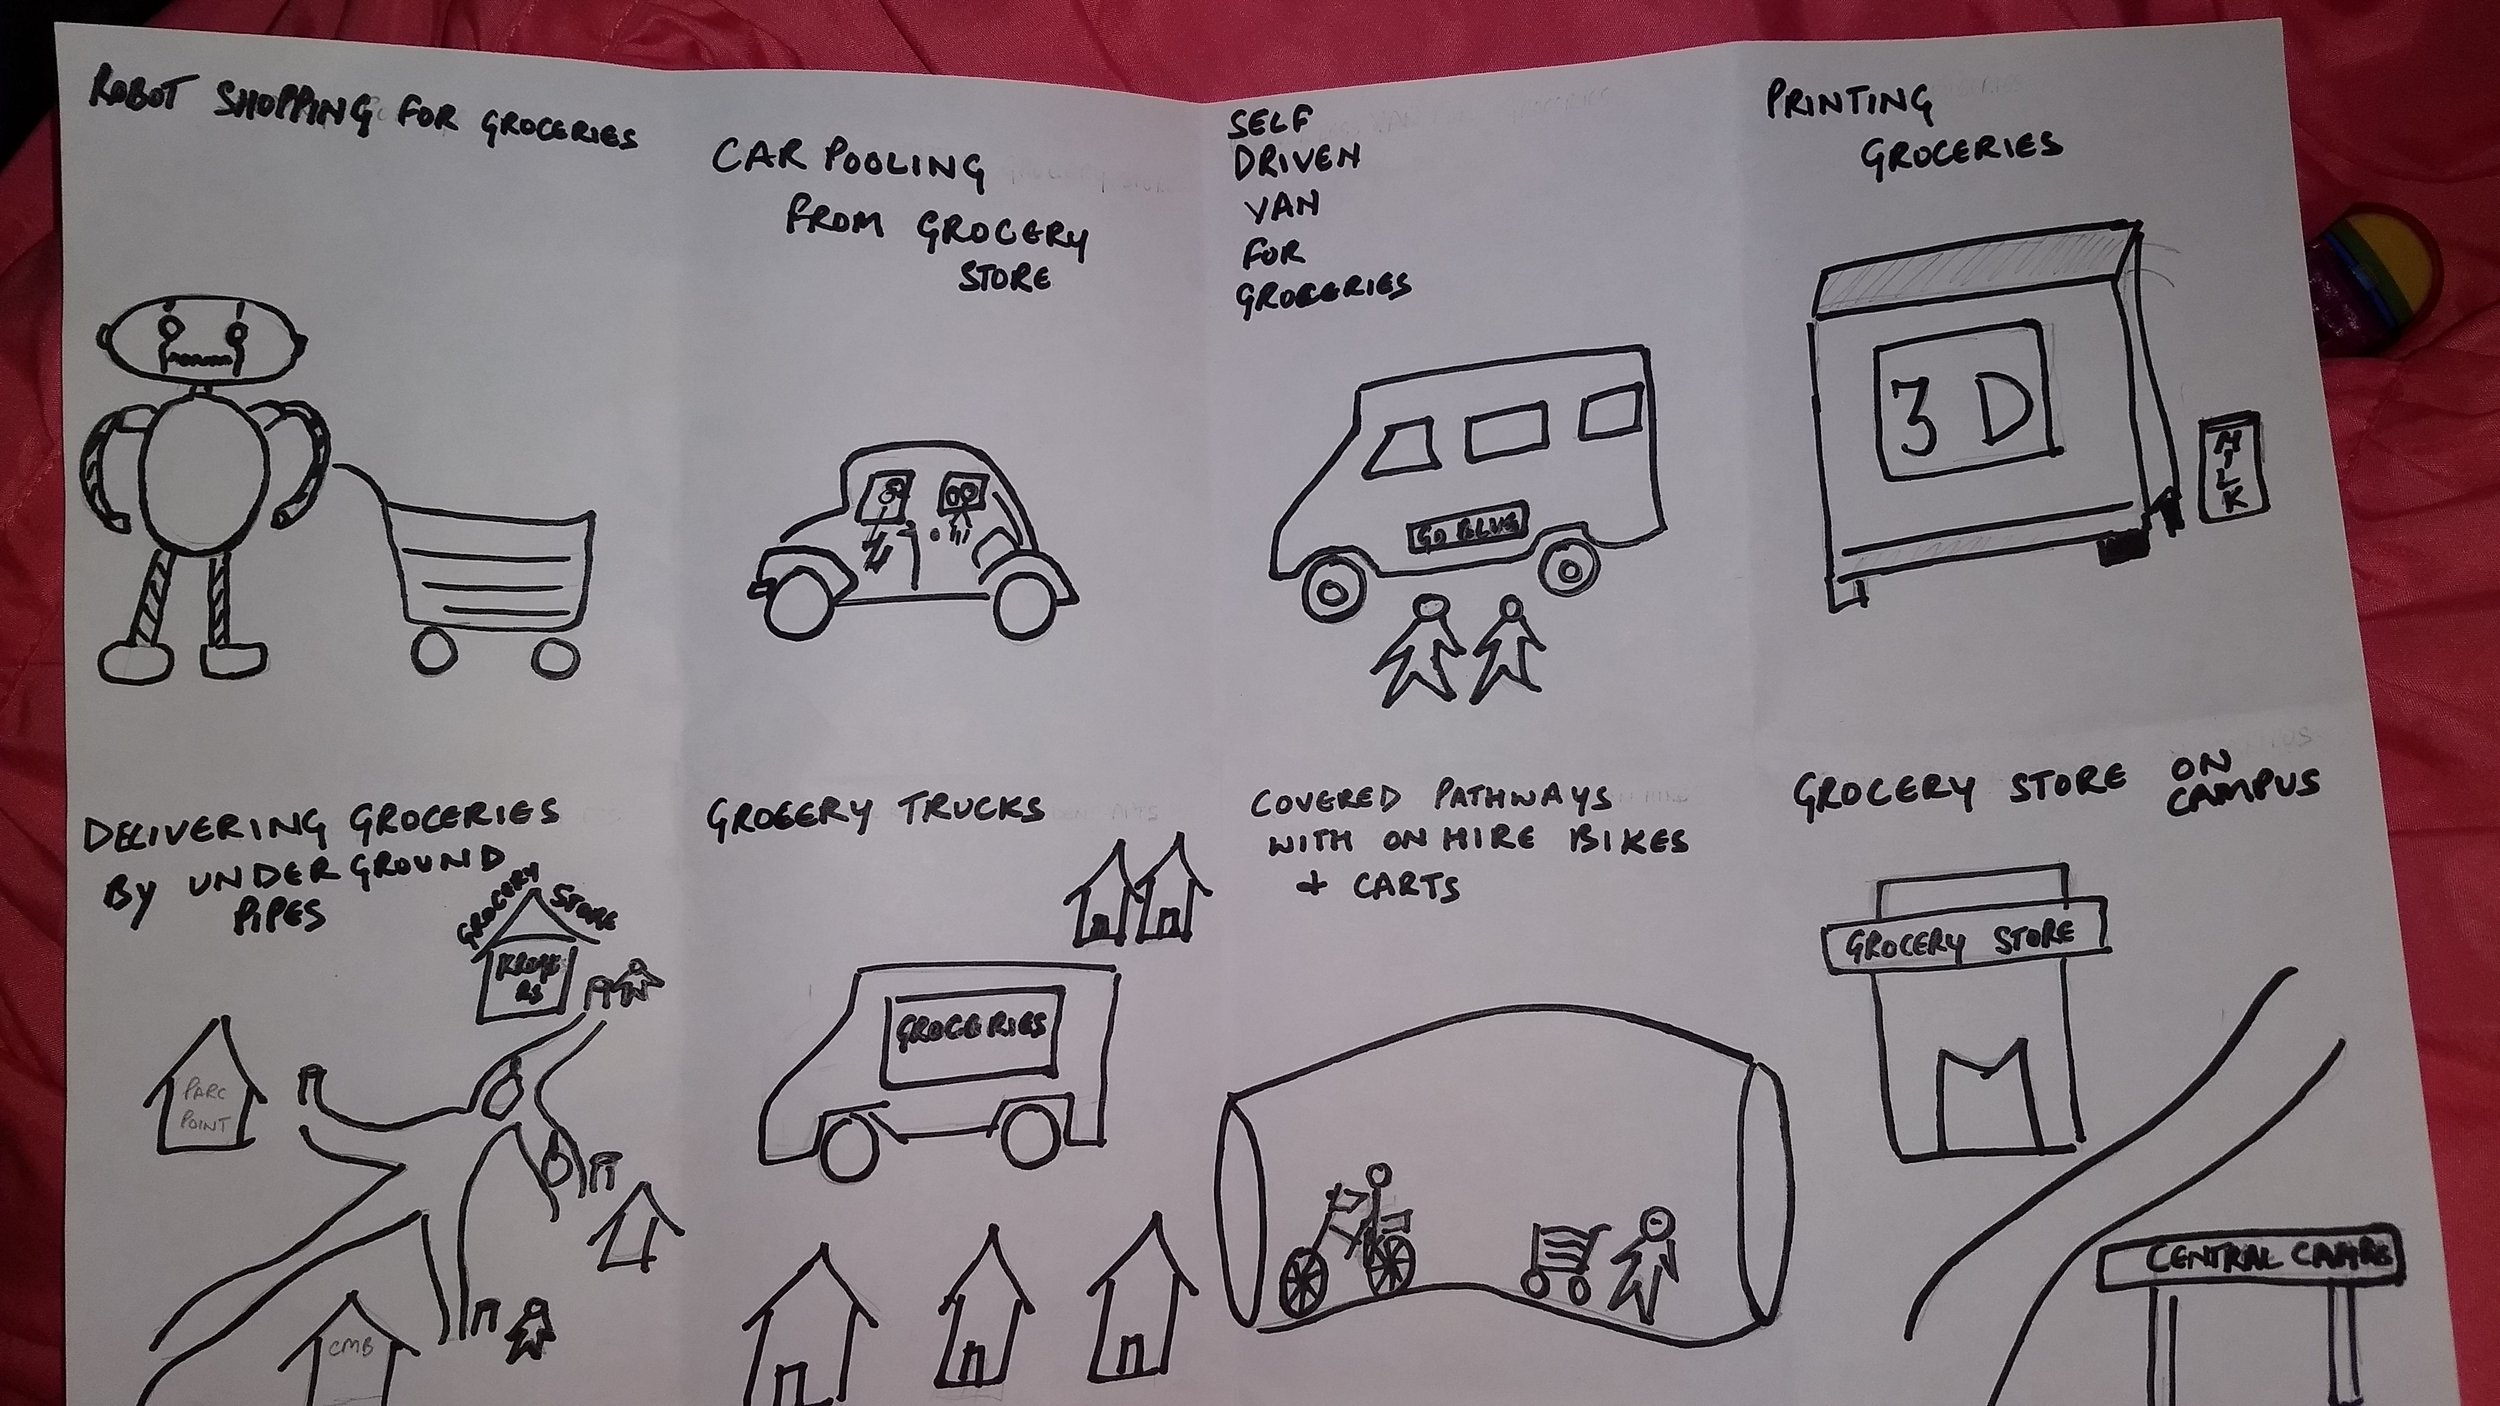 ROBOT SHOPPING FOR GROCERIES
CAR POOLING
FROM GROCERY
STORE
SELF
DRIVEN
VAN
FOR
GROCERIES
GO BLUE
PRINTING
GROCERIES
3D
MILK
DELIVERING GROCERIES
BY UNDERGROUND
PIPES
GROCERY STORE
KROGE
RS
PARC
POINT
CMB
GROCERY TRUCKS
GROCERIES
COVERED PATHWAYS
WITH ON HIRE BIKES
& CARTS
GROCERY STORE ON
CAMPUS
GROCERY STORE
CENTRAL